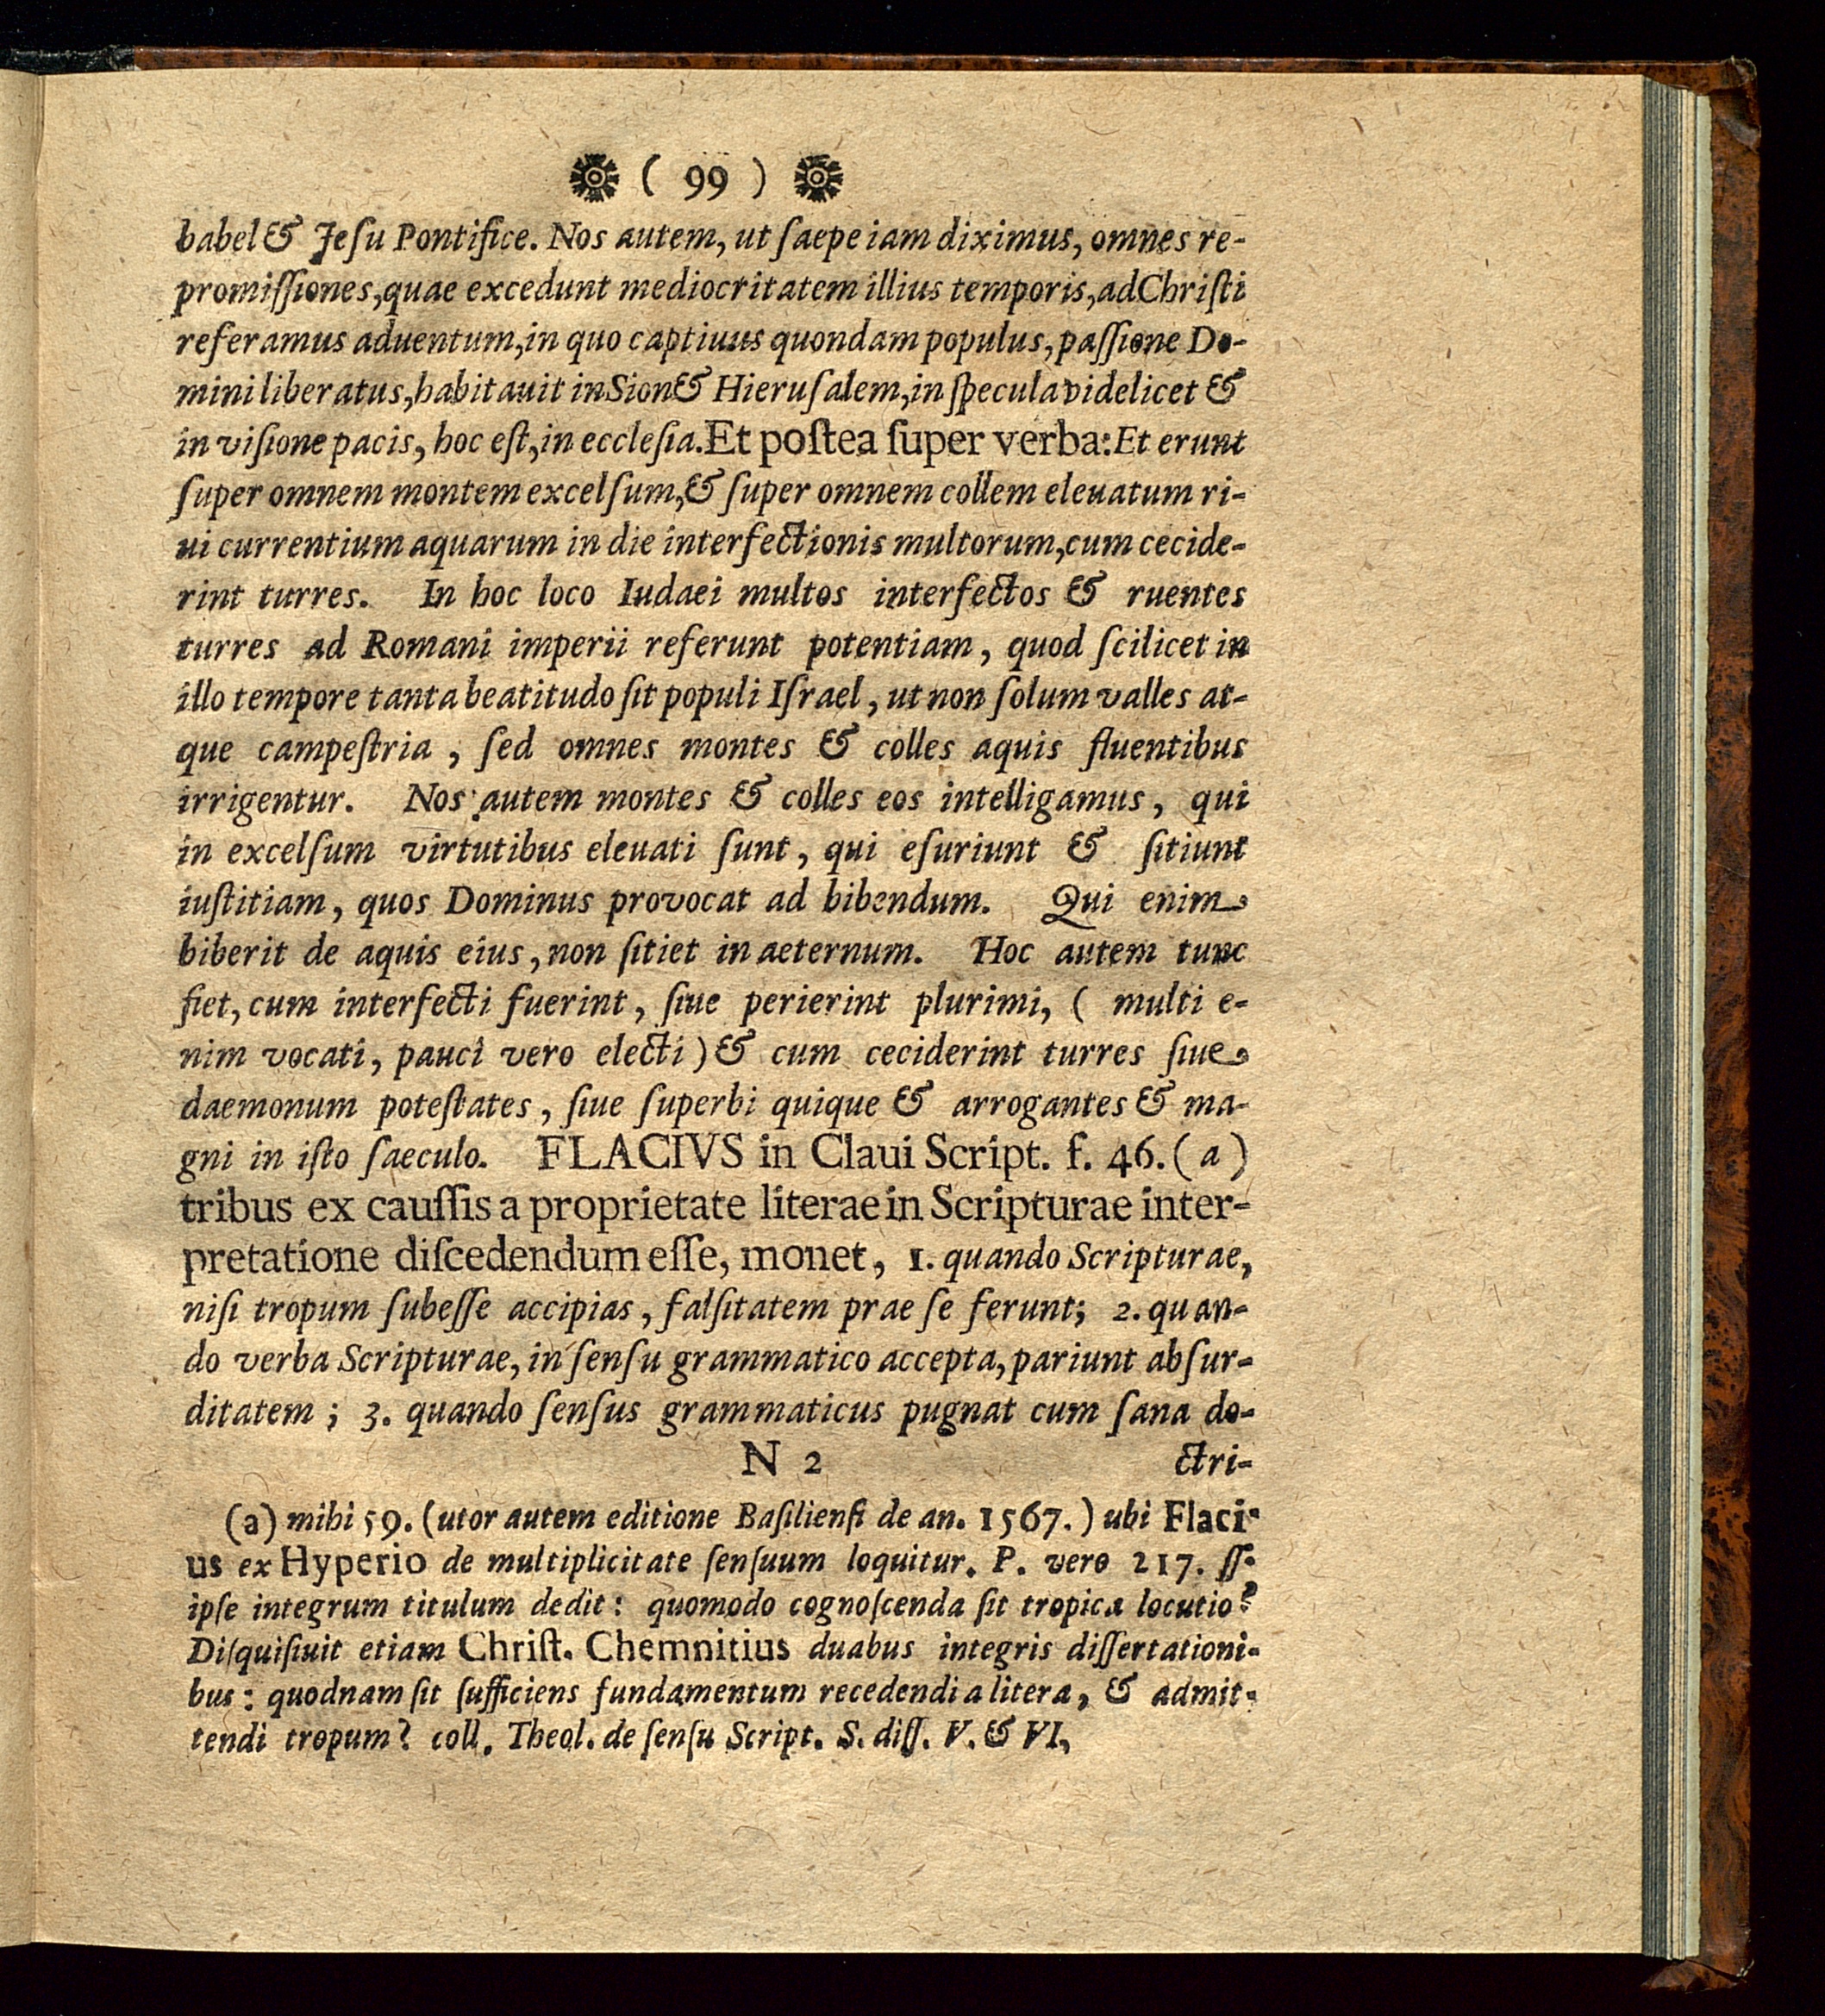 ( 99 )
babel & Jeſu Pontifice. Nos autem, ut ſaepe iam diximus, omnes re-
promiſſiones, quae excedunt mediocritatem illius temporis, ad Chriſti
referamus aduentum, in quo captiuus quondam populus, paſſione Do-
mini liberatus, habitauit in Sion & Hieruſalem, in ſpecula videlicet &
in viſione pacis, hoc eſt, in eccleſia. Et poſtea ſuper verba: Et erunt
ſuper omnem montem excelſum, & ſuper omnem collem eleuatum ri-
ui currentium aquarum in die interfectionis multorum, cum cecide-
rint turres. In hoc loco Iudaei multos interfectos & ruentes
turres ad Romani imperii referunt potentiam, quod ſcilicet in
illo tempore tanta beatitudo ſit populi Iſrael, ut non ſolum valles at-
que campeſtria, ſed omnes montes & colles aquis fluentibus
irrigentur. Nos autem montes & colles eos intelligamus, qui
in excelſum virtutibus eleuati ſunt, qui eſuriunt & ſitiunt
iuſtitiam, quos Dominus provocat ad bibendum. Qui enim
biberit de aquis eius, non ſitiet in aeternum. Hoc autem tunc
fiet, cum interfecti fuerint, ſiue perierint plurimi, ( multi e-
nim vocati, pauci vero electi) & cum ceciderint turres ſiue
daemonum poteſtates, ſiue ſuperbi quique & arrogantes & ma-
gni in iſto ſaeculo. FLACIVS in Claui Script. f. 46. (a)
tribus ex cauſſis a proprietate literae in Scripturae inter-
pretatione diſcedendum eſſe, monet, 1. quando Scripturae,
niſi tropum ſubeſſe accipias, falſitatem prae ſe ferunt; 2. quan-
do verba Scripturae, in ſenſu grammatico accepta, pariunt abſur-
ditatem; 3. quando ſenſus grammaticus pugnat cum ſana do-
N 2 ctri-
(a) mihi 59. (utor autem editione Baſilienſi de an. 1567.) ubi Flaci-
us ex Hyperio de multiplicitate ſenſuum loquitur. P. vero 217. ſſ.
ipſe integrum titulum dedit: quomodo cognoſcenda ſit tropica locutio?
Diſquiſiuit etiam Chriſt. Chemnitius duabus integris diſſertationi-
bus: quodnam ſit ſufficiens fundamentum recedendi a litera, & admit-
tendi tropum? coll. Theol. de ſenſu Script. S. diſſ. V. & VI,